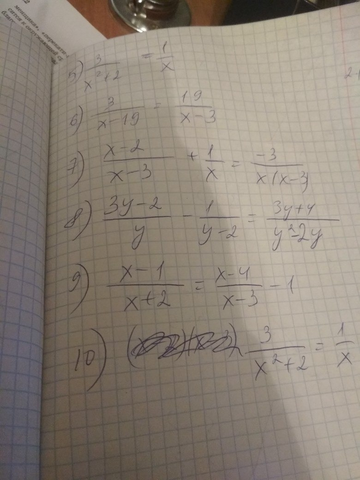 5) 3/(x²+2) = 1/x
6) 3/(x-19) = 19/(x-3)
7) (x-2)/(x-3) + 1/x = -3/(x(x-3))
8) (3y-2)/y - 1/(y-2) = (3y+4)/(y²-2y)
9) (x-1)/(x+2) = (x-4)/(x-3) - 1
10) 3/(x²+2) = 1/x